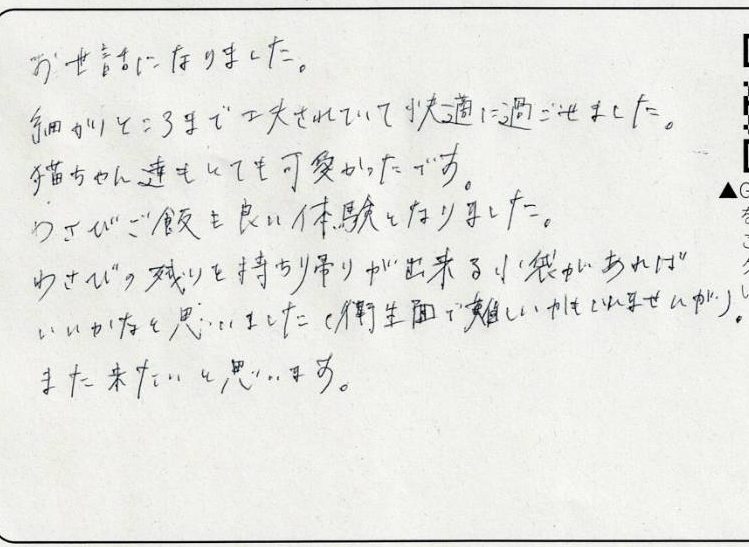 お世話になりました。
細かいところまで工夫されていて快適に過ごせました。
猫ちゃん達もとても可愛かったです。
わさびご飯も良い体験となりました。
わさびの残りを持ち帰りが出来る小袋があれば
いいかなと思いました(衛生面で難しいかもしれませんが)。
また来たいと思います。
▲G
を